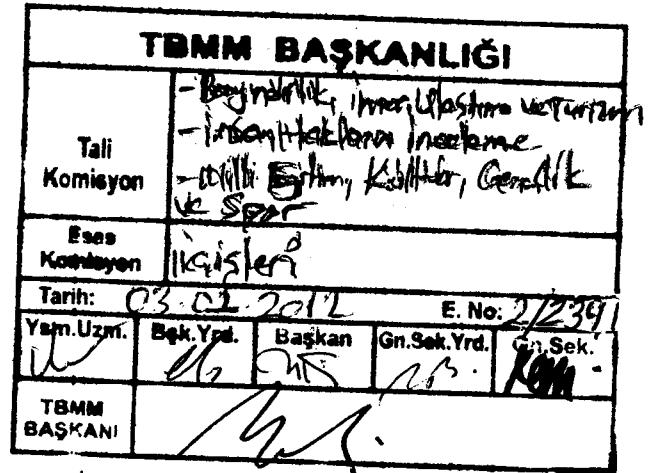 TBMM BAŞKANLIĞI
Tali Komisyon
- Bayındırlık, İmar, Ulaştırma ve Turizm
- İnsan Haklarını İnceleme
- Milli Eğitim, Kültür, Gençlik
ve Spor
Esas Komisyon
İçişleri
Tarih: 03.02.2012 E. No: 2/2391
Ysm.Uzm. Bşk.Yrd. Başkan Gn.Sek.Yrd. Gn.Sek.
TBMM
BAŞKANI